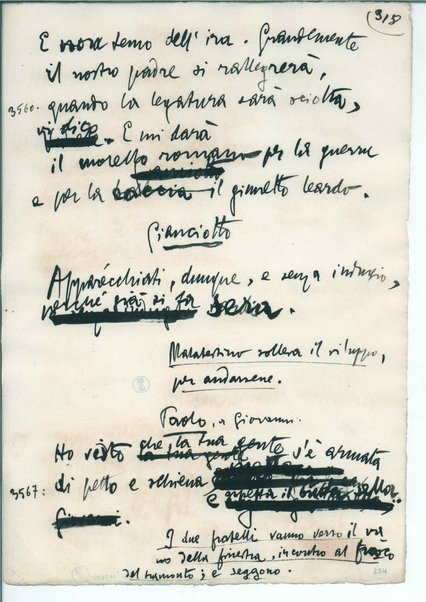 315
E non temo dell'ira. Grandemente
il nostro padre si rallegrerà,
3560. quando la legatura sarà sciolta,
vi dico. E mi darà
il morello romano per la guerra
e per la caccia il giannetto leardo.
Gianciotto
Apparécchiati, dunque, e senza indugio,
perché già si fa sera.
Malatestino solleva il viluppo,
per andarsene.
Paolo, a Giovanni.
Ho visto che la tua gente s'è armata
di petto e schiena
3567: e aspetta il butta sella.
Giovanni.
I due fratelli vanno verso il va
no della finestra, incontro al fuoco
del tramonto; e seggono.
324